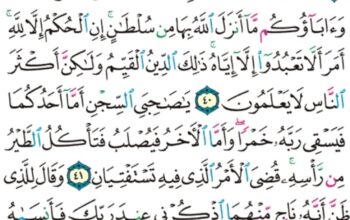 وَءَابَآؤُكُم مَّآ أَنزَلَ ٱللَّهُ بِهَا مِن سُلْطَٰنٍ ۚ إِنِ ٱلْحُكْمُ إِلَّا لِلَّهِ
أَمَرَ أَلَّا تَعْبُدُوٓا۟ إِلَّآ إِيَّاهُ ۚ ذَٰلِكَ ٱلدِّينُ ٱلْقَيِّمُ وَلَٰكِنَّ أَكْثَرَ
ٱلنَّاسِ لَا يَعْلَمُونَ ٤٠ يَٰصَىٰحِبَىِ ٱلسِّجْنِ أَمَّآ أَحَدُكُمَا
فَيَسْقِى رَبَّهُۥ خَمْرًا ۖ وَأَمَّا ٱلْـَٔاخَرُ فَيُصْلَبُ فَتَأْكُلُ ٱلطَّيْرُ
مِن رَّأْسِهِۦ ۚ قُضِىَ ٱلْأَمْرُ ٱلَّذِى فِيهِ تَسْتَفْتِيَانِ ٤١ وَقَالَ لِلَّذِى
ظَنَّ أَنَّهُۥ نَاجٍ مِّنْهُمَا ٱذْكُرْنِى عِندَ رَبِّكَ فَأَنسَىٰهُ